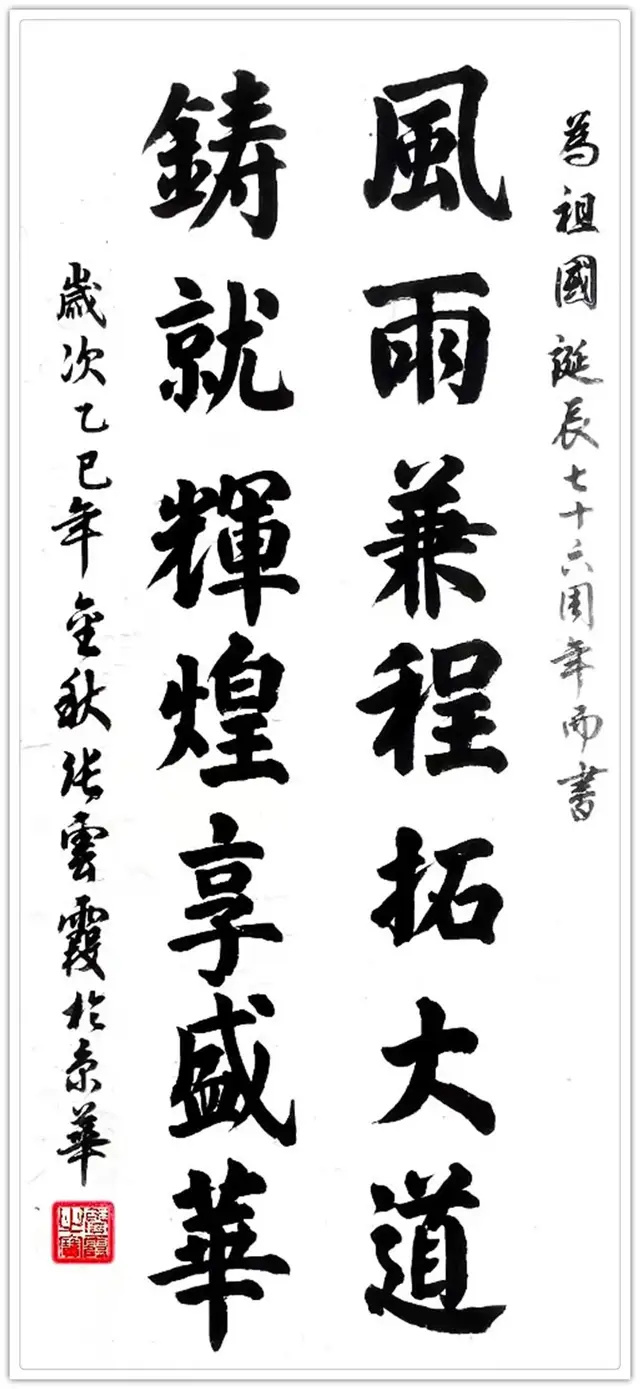 為祖國誕辰七十六周年而書
風雨兼程拓大道
鑄就輝煌享盛華
歲次乙巳年金秋張雲霞於京華